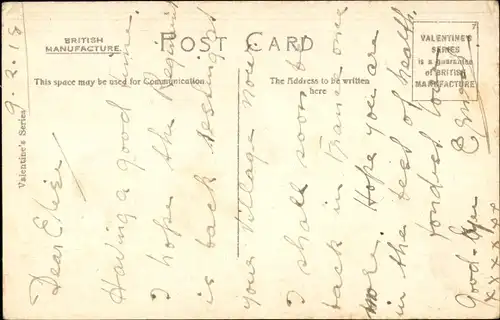 BRITISH
MANUFACTURE.
POST CARD
This space may be used for Communication.
The Address to be written
here
VALENTINE'S
SERIES
is a guarantee
of BRITISH
MANUFACTURE
Valentine's Series
9.2.18
Dear
Having a good time.
I hope the Regiment
is back resting at
your village now.
I shall soon be
back in France once
more. Hope you are
in the best of health.
fondest love
Good-bye
xxxxxxx